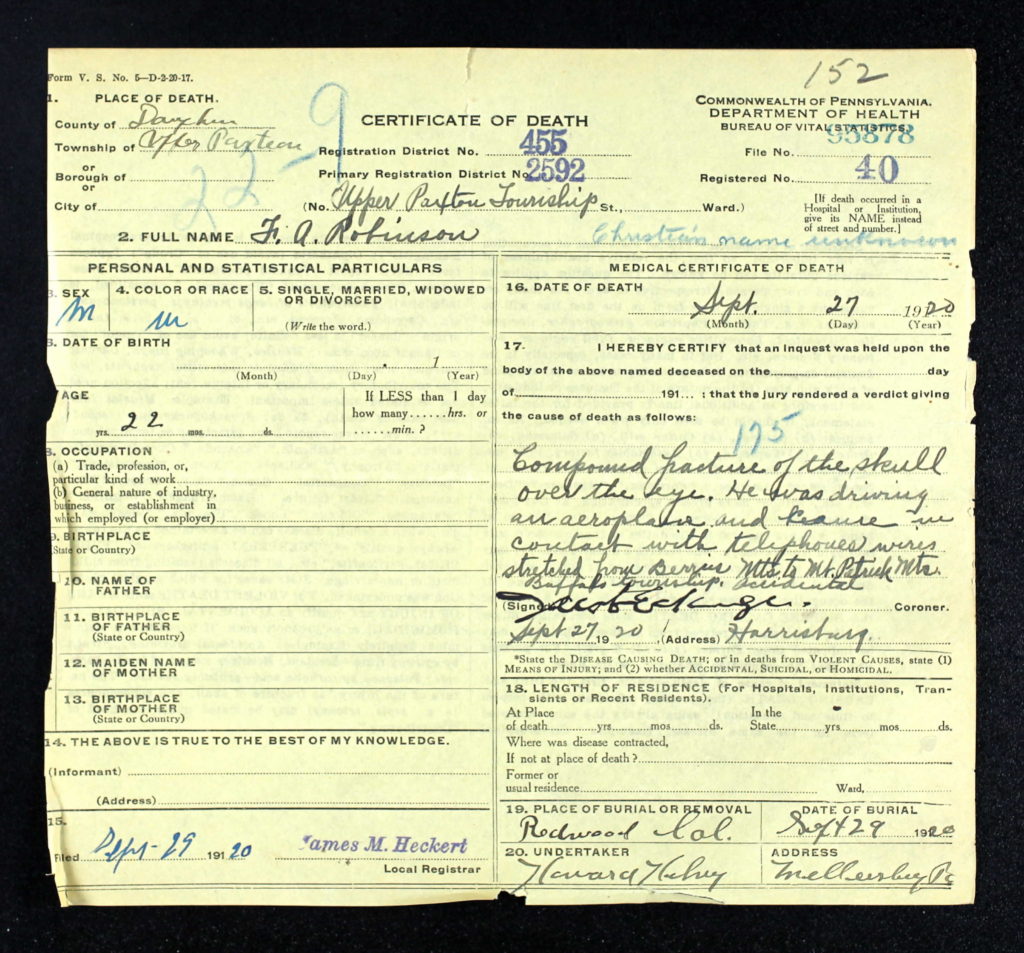 152
Form V. S. No. 5—D-2-20-17.
1. PLACE OF DEATH.
County of Dauphin
Township of Upper Paxton
or
Borough of
or
City of
22-9
CERTIFICATE OF DEATH
Registration District No. 455
Primary Registration District No. 2592
(No. Upper Paxton Township St., Ward.)
COMMONWEALTH OF PENNSYLVANIA.
DEPARTMENT OF HEALTH
BUREAU OF VITAL STATISTICS.
File No. 95878
Registered No. 40
[If death occurred in a
Hospital or Institution,
give its NAME instead
of street and number.]
2. FULL NAME F. A. Robinson Christian name unknown
PERSONAL AND STATISTICAL PARTICULARS
3. SEX
M
4. COLOR OR RACE
W
5. SINGLE, MARRIED, WIDOWED
OR DIVORCED
(Write the word.)
6. DATE OF BIRTH
1
(Month) (Day) (Year)
AGE
22
yrs. mos. ds.
If LESS than 1 day
how many......hrs. or
......min. ?
8. OCCUPATION
(a) Trade, profession, or,
particular kind of work
(b) General nature of industry,
business, or establishment in
which employed (or employer)
9. BIRTHPLACE
(State or Country)
10. NAME OF
FATHER
11. BIRTHPLACE
OF FATHER
(State or Country)
12. MAIDEN NAME
OF MOTHER
13. BIRTHPLACE
OF MOTHER
(State or Country)
14. THE ABOVE IS TRUE TO THE BEST OF MY KNOWLEDGE.
(Informant)
(Address)
15.
Filed Sept-29 19120 James M. Heckert
Local Registrar
MEDICAL CERTIFICATE OF DEATH
16. DATE OF DEATH
Sept. 27 1920
(Month) (Day) (Year)
17. I HEREBY CERTIFY that an inquest was held upon the
body of the above named deceased on the day
of 191... : that the jury rendered a verdict giving
the cause of death as follows:
175
Compound fracture of the skull
over the eye. He was driving
an aeroplane and came in
contact with telephones wires
stretched from Berrys Mts. to Mt. Patrick Mts.
Buffalo township. Accidental
(Signed) Coroner.
Sept 27 1920 (Address) Harrisburg.
*State the DISEASE CAUSING DEATH; or in deaths from VIOLENT CAUSES, state (1)
MEANS OF INJURY; and (2) whether ACCIDENTAL, SUICIDAL, or HOMICIDAL.
18. LENGTH OF RESIDENCE (For Hospitals, Institutions, Tran-
sients or Recent Residents).
At Place
of death yrs mos. ds.
In the
State yrs mos ds.
Where was disease contracted,
If not at place of death ?
Former or
usual residence Ward,
19. PLACE OF BURIAL OR REMOVAL
Redwood Cal.
DATE OF BURIAL
Sept 29 1920
20. UNDERTAKER
Howard
ADDRESS
Pa